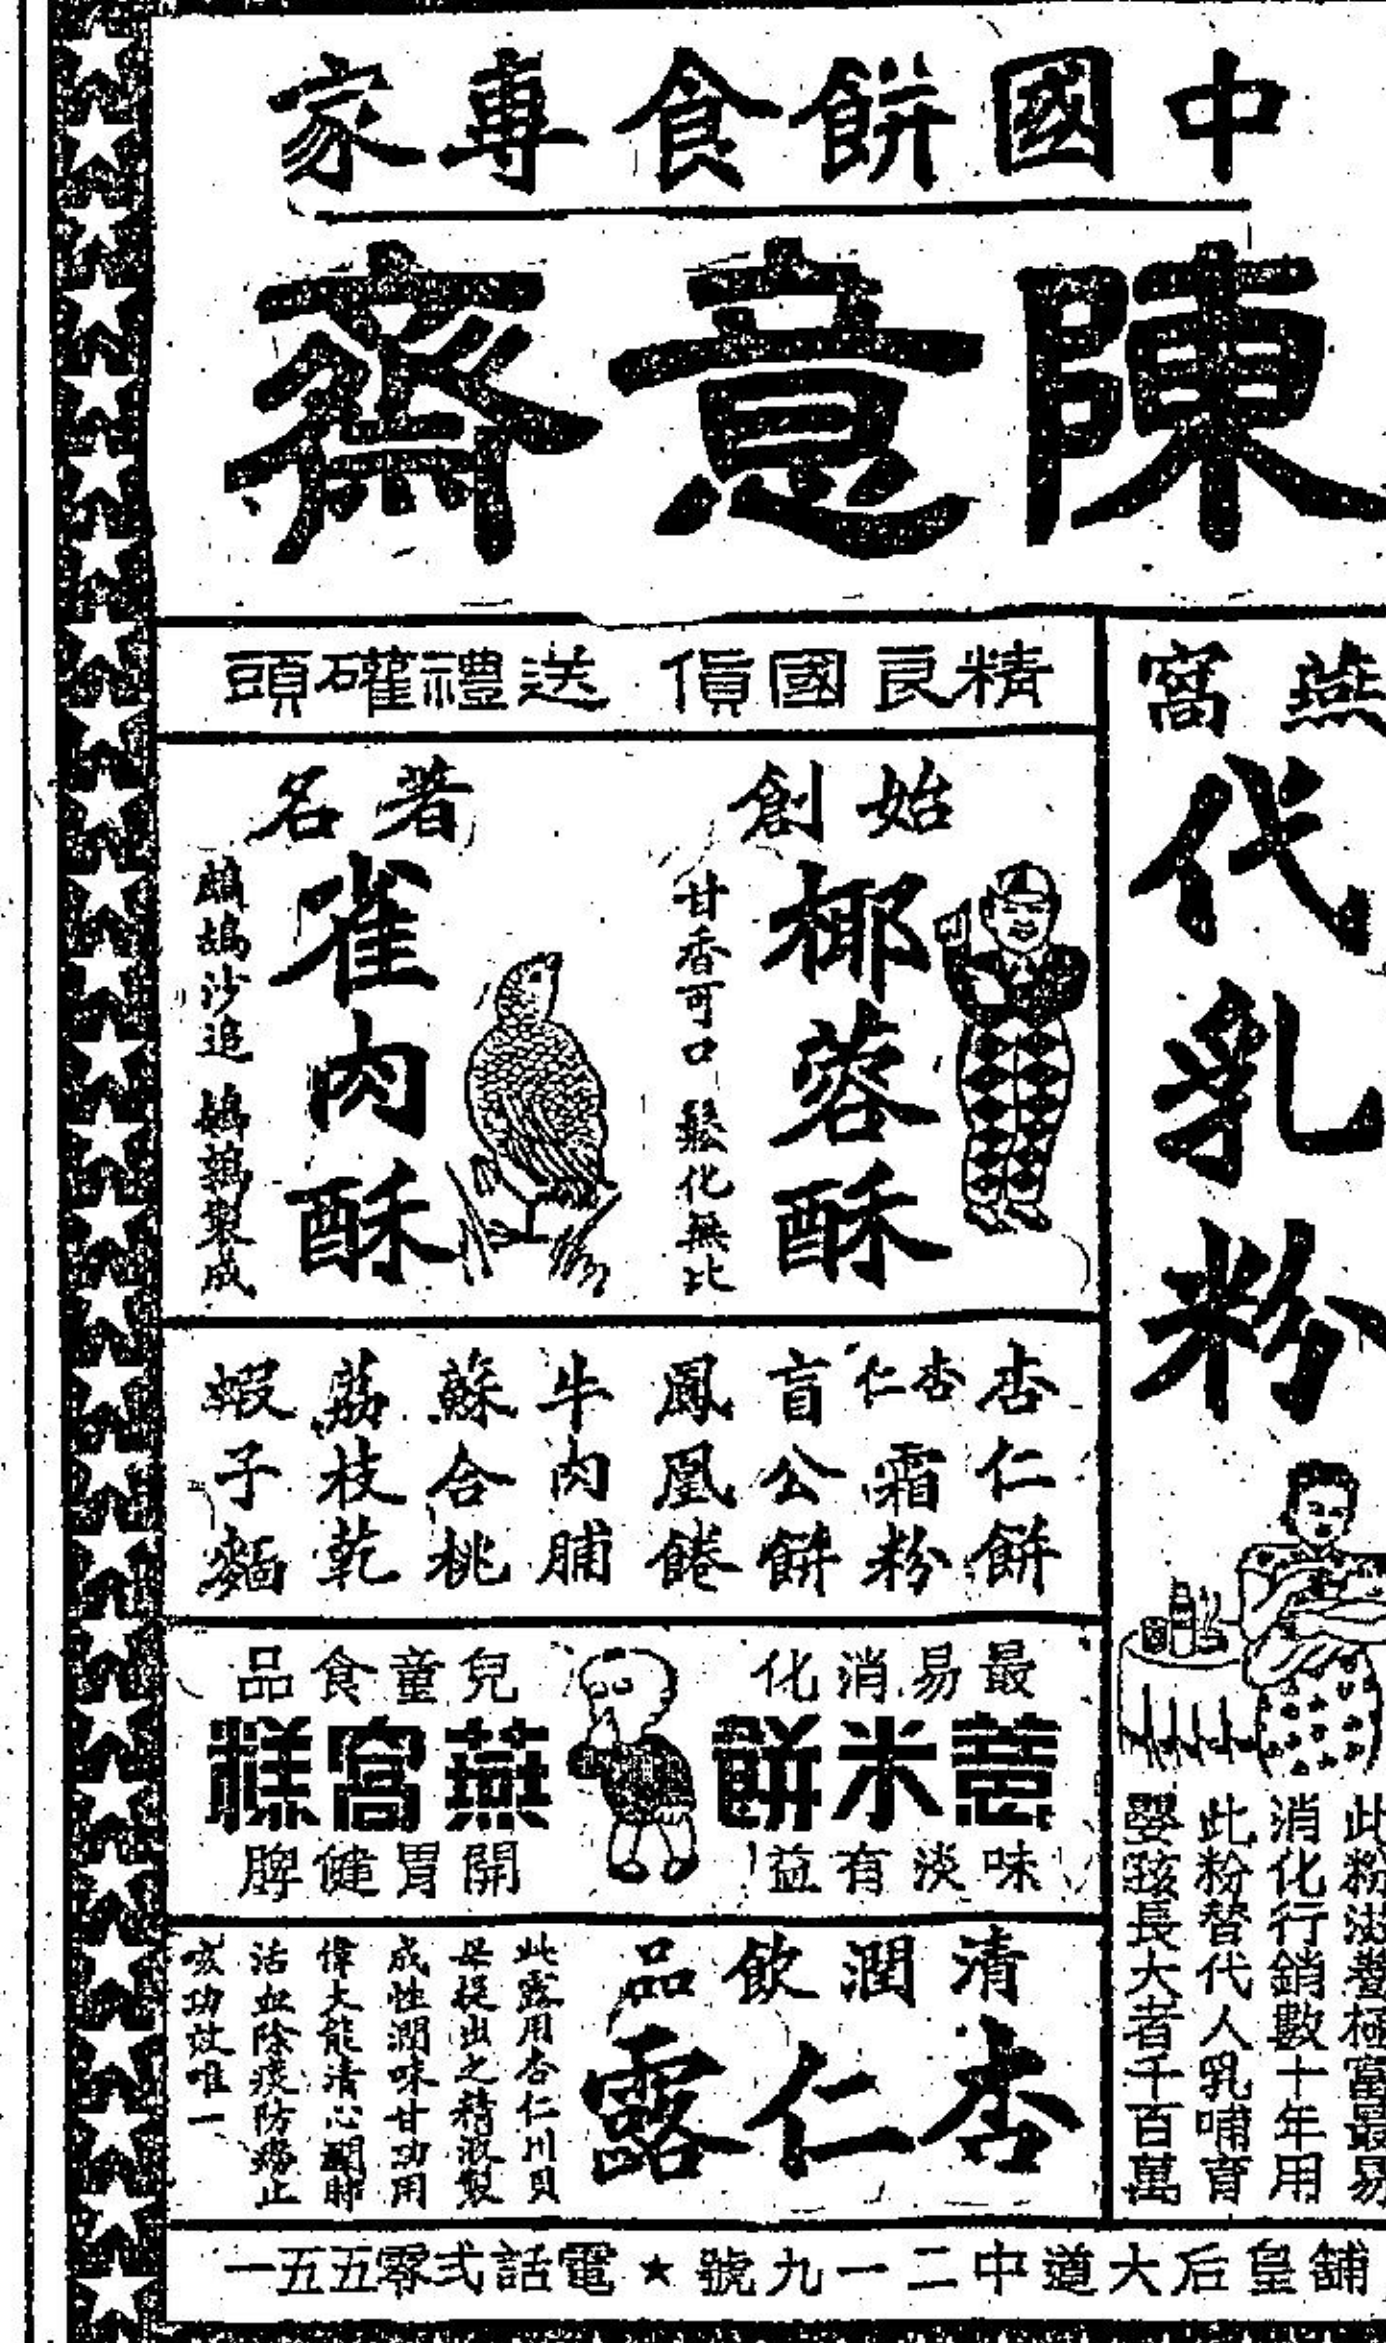 中國餅食專家
陳意齋
精良國貨 送禮礶頭
燕窩
代乳粉
此粉滋養極富最易
消化行銷數十年用
此粉替代人乳哺育
嬰孩長大者千百萬
始創
椰蓉酥
甘香可口 鬆化無比
著名
雀肉酥
鷓鴣沙追 鵪鶉製成
杏仁餅
杏仁霜粉
盲公餅
鳳凰餋
牛肉脯
蘇合桃
荔枝乾
蝦子麵
最易消化
薏米餅
味淡有益
兒童食品
燕窩糕
開胃健脾
清潤飲品
杏仁露
此露用杏仁川貝
母提出之精液製
成性潤味甘功用
偉大能清心潤肺
活血除痰防癆止
咳功效唯一
舖皇后大道中二一九號★電話弍零五五一